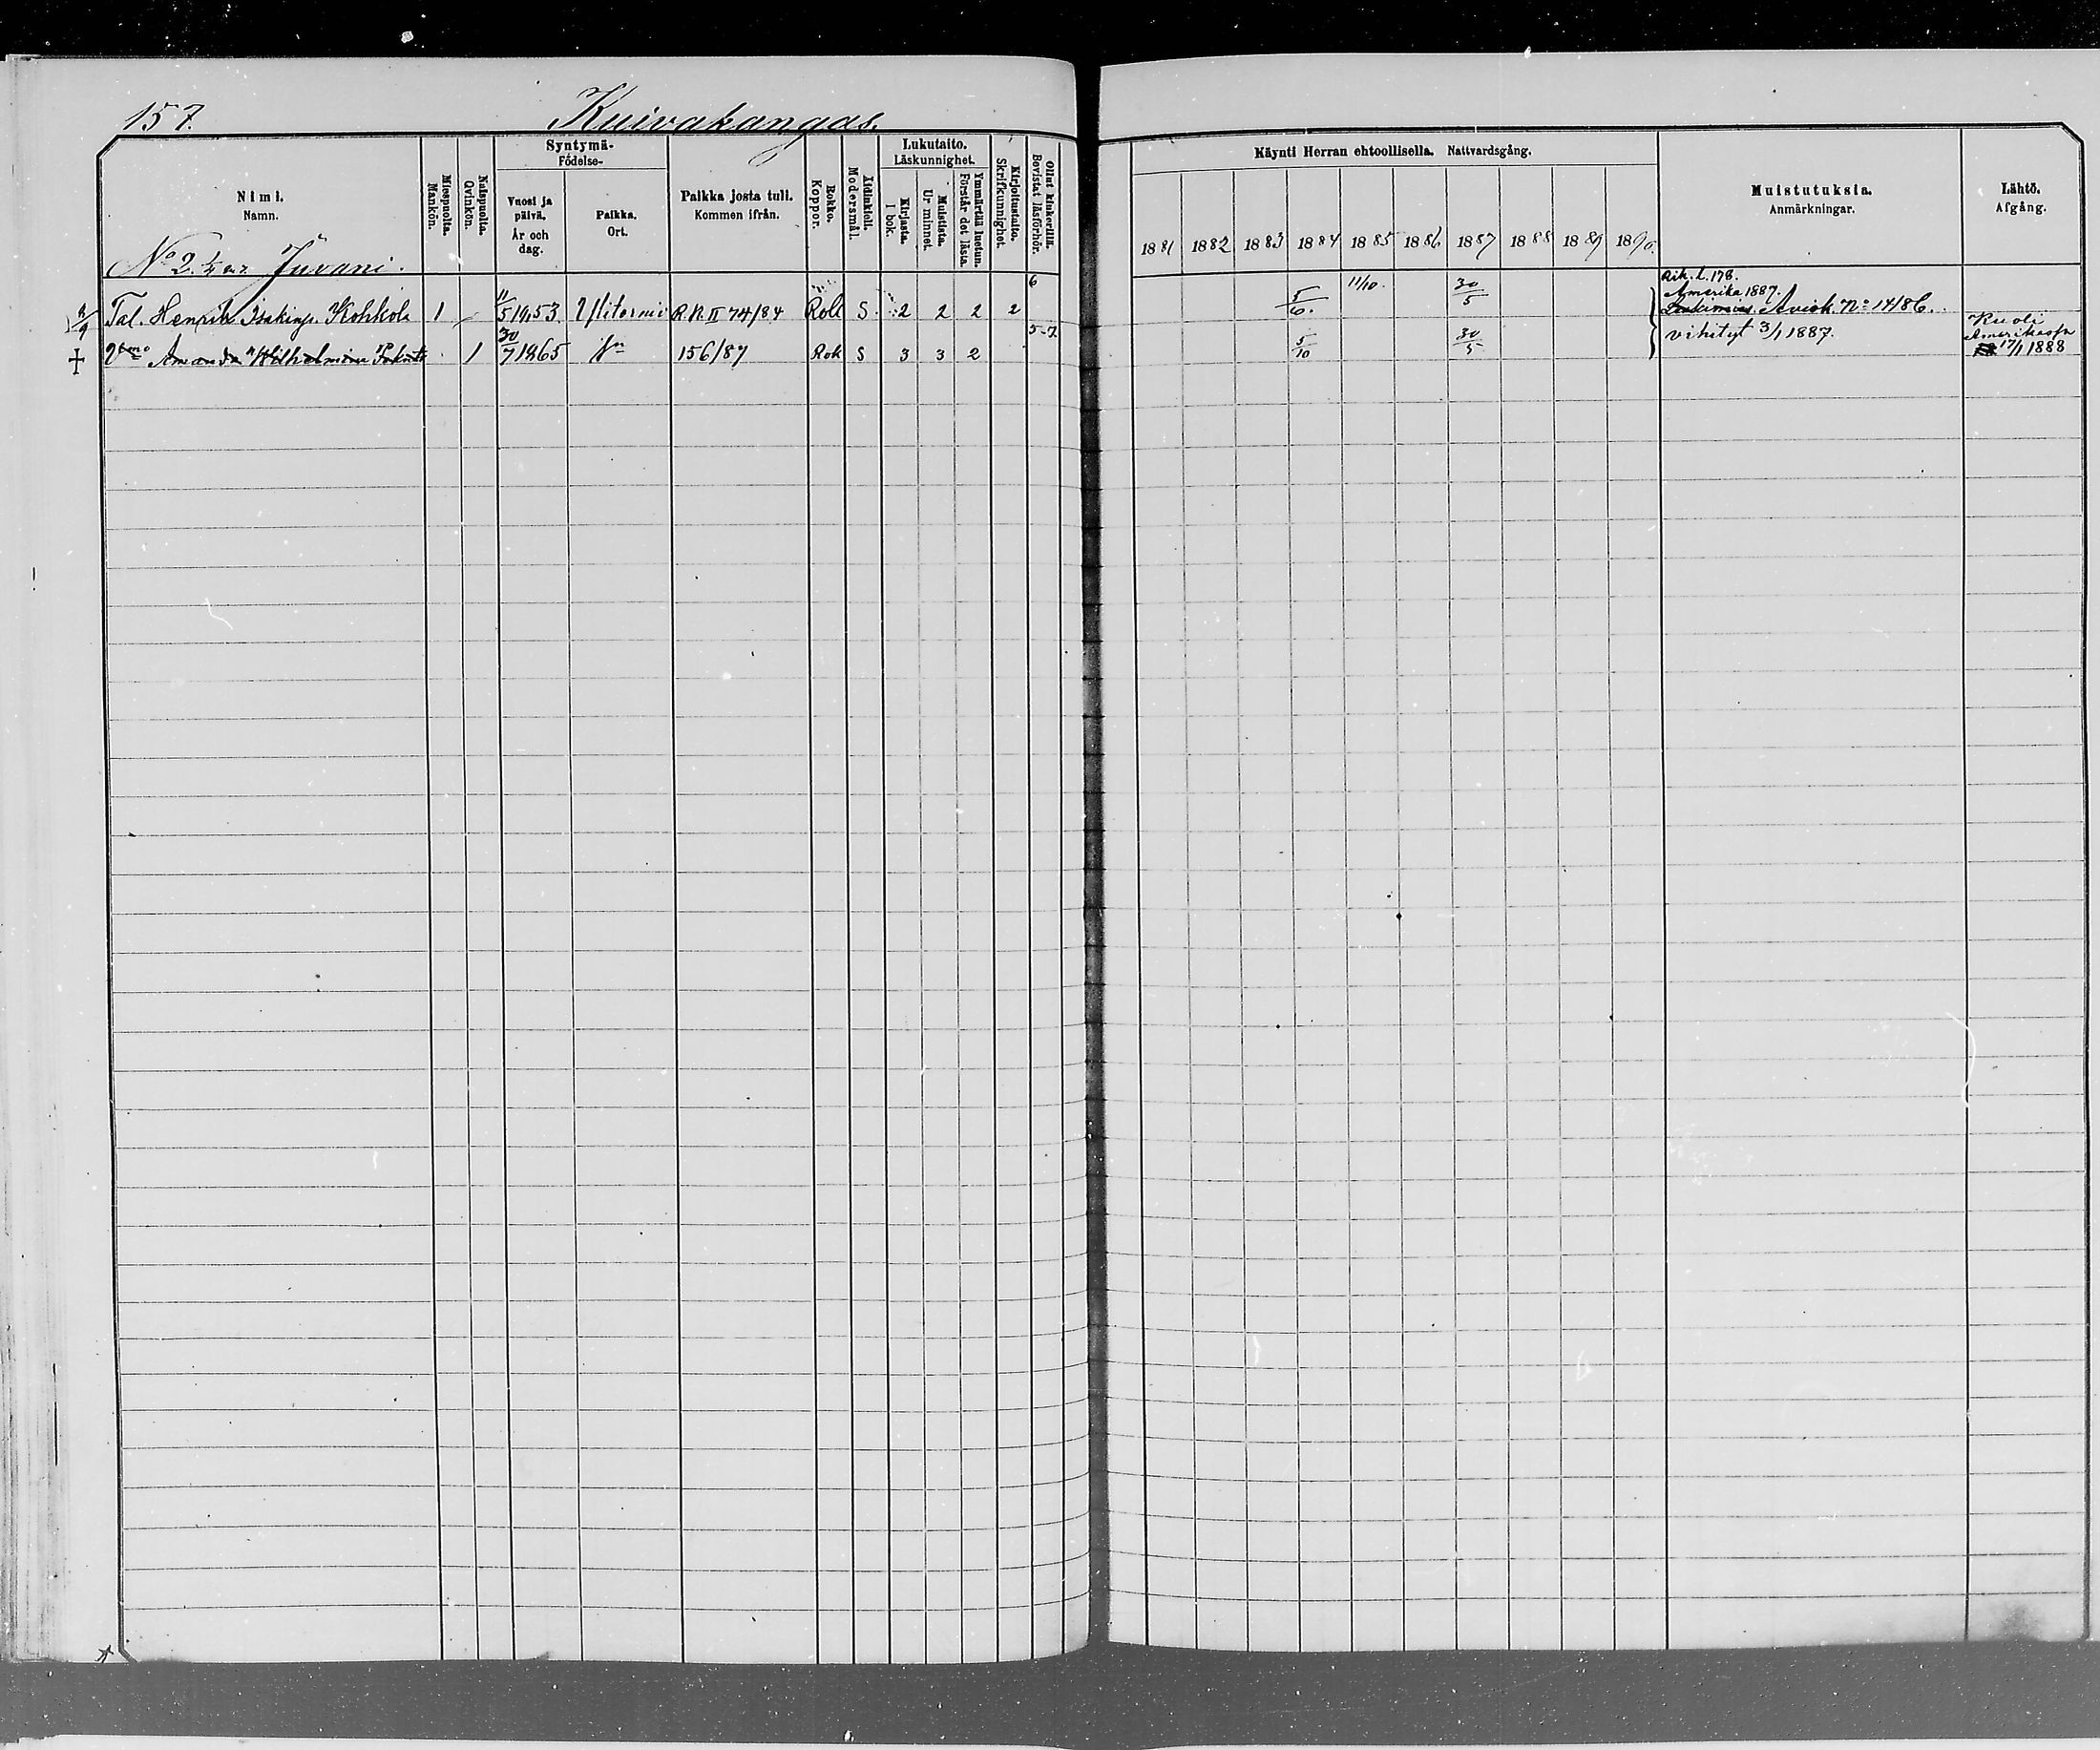 157. Kuivakangas.
Nimi.
Namn.
Miespuolta.
Mankön.
Naispuolta.
Qvinkön.
Syntymä-
Födelse-
Vuosi ja
päivä.
År och
dag.
Paikka.
Ort.
Paikka josta tuli.
Kommen ifrån.
Rokko.
Koppor.
Äidinkieli.
Modersmål.
Lukutaito.
Läskunnighet.
Kirjasta.
I bok.
Muistista.
Ur minnet.
Ymmärtää luetun.
Förstår det lästa.
Kirjoitustaito.
Skrifkunnighet.
Ollut kinkerillä.
Bevistat läsförhör.
Käynti Herran ehtoollisella. Nattvardsgång.
1881 1882 1883 1884 1885 1886 1887 1888 1889 1890
Muistutuksia.
Anmärkningar.
Lähtö.
Afgång.
No 2. Juvani.
Tal. Henrik Isakinp. Kohkola 1 11/5 1853 R.K. II 74/84 Rok S 2 2 2 2 6 5/6. 11/10. 30/5
Rik. l. 178.
Amerika 1887.
Avisk. No 14/86.
2 vmo Amanda Wilhelmina 1 30/7 1865 156/87 Rok S 3 3 2 5-7 5/10 30/5
vihityt 3/1 1887.
Kuoli
Amerikassa
17/1 1888